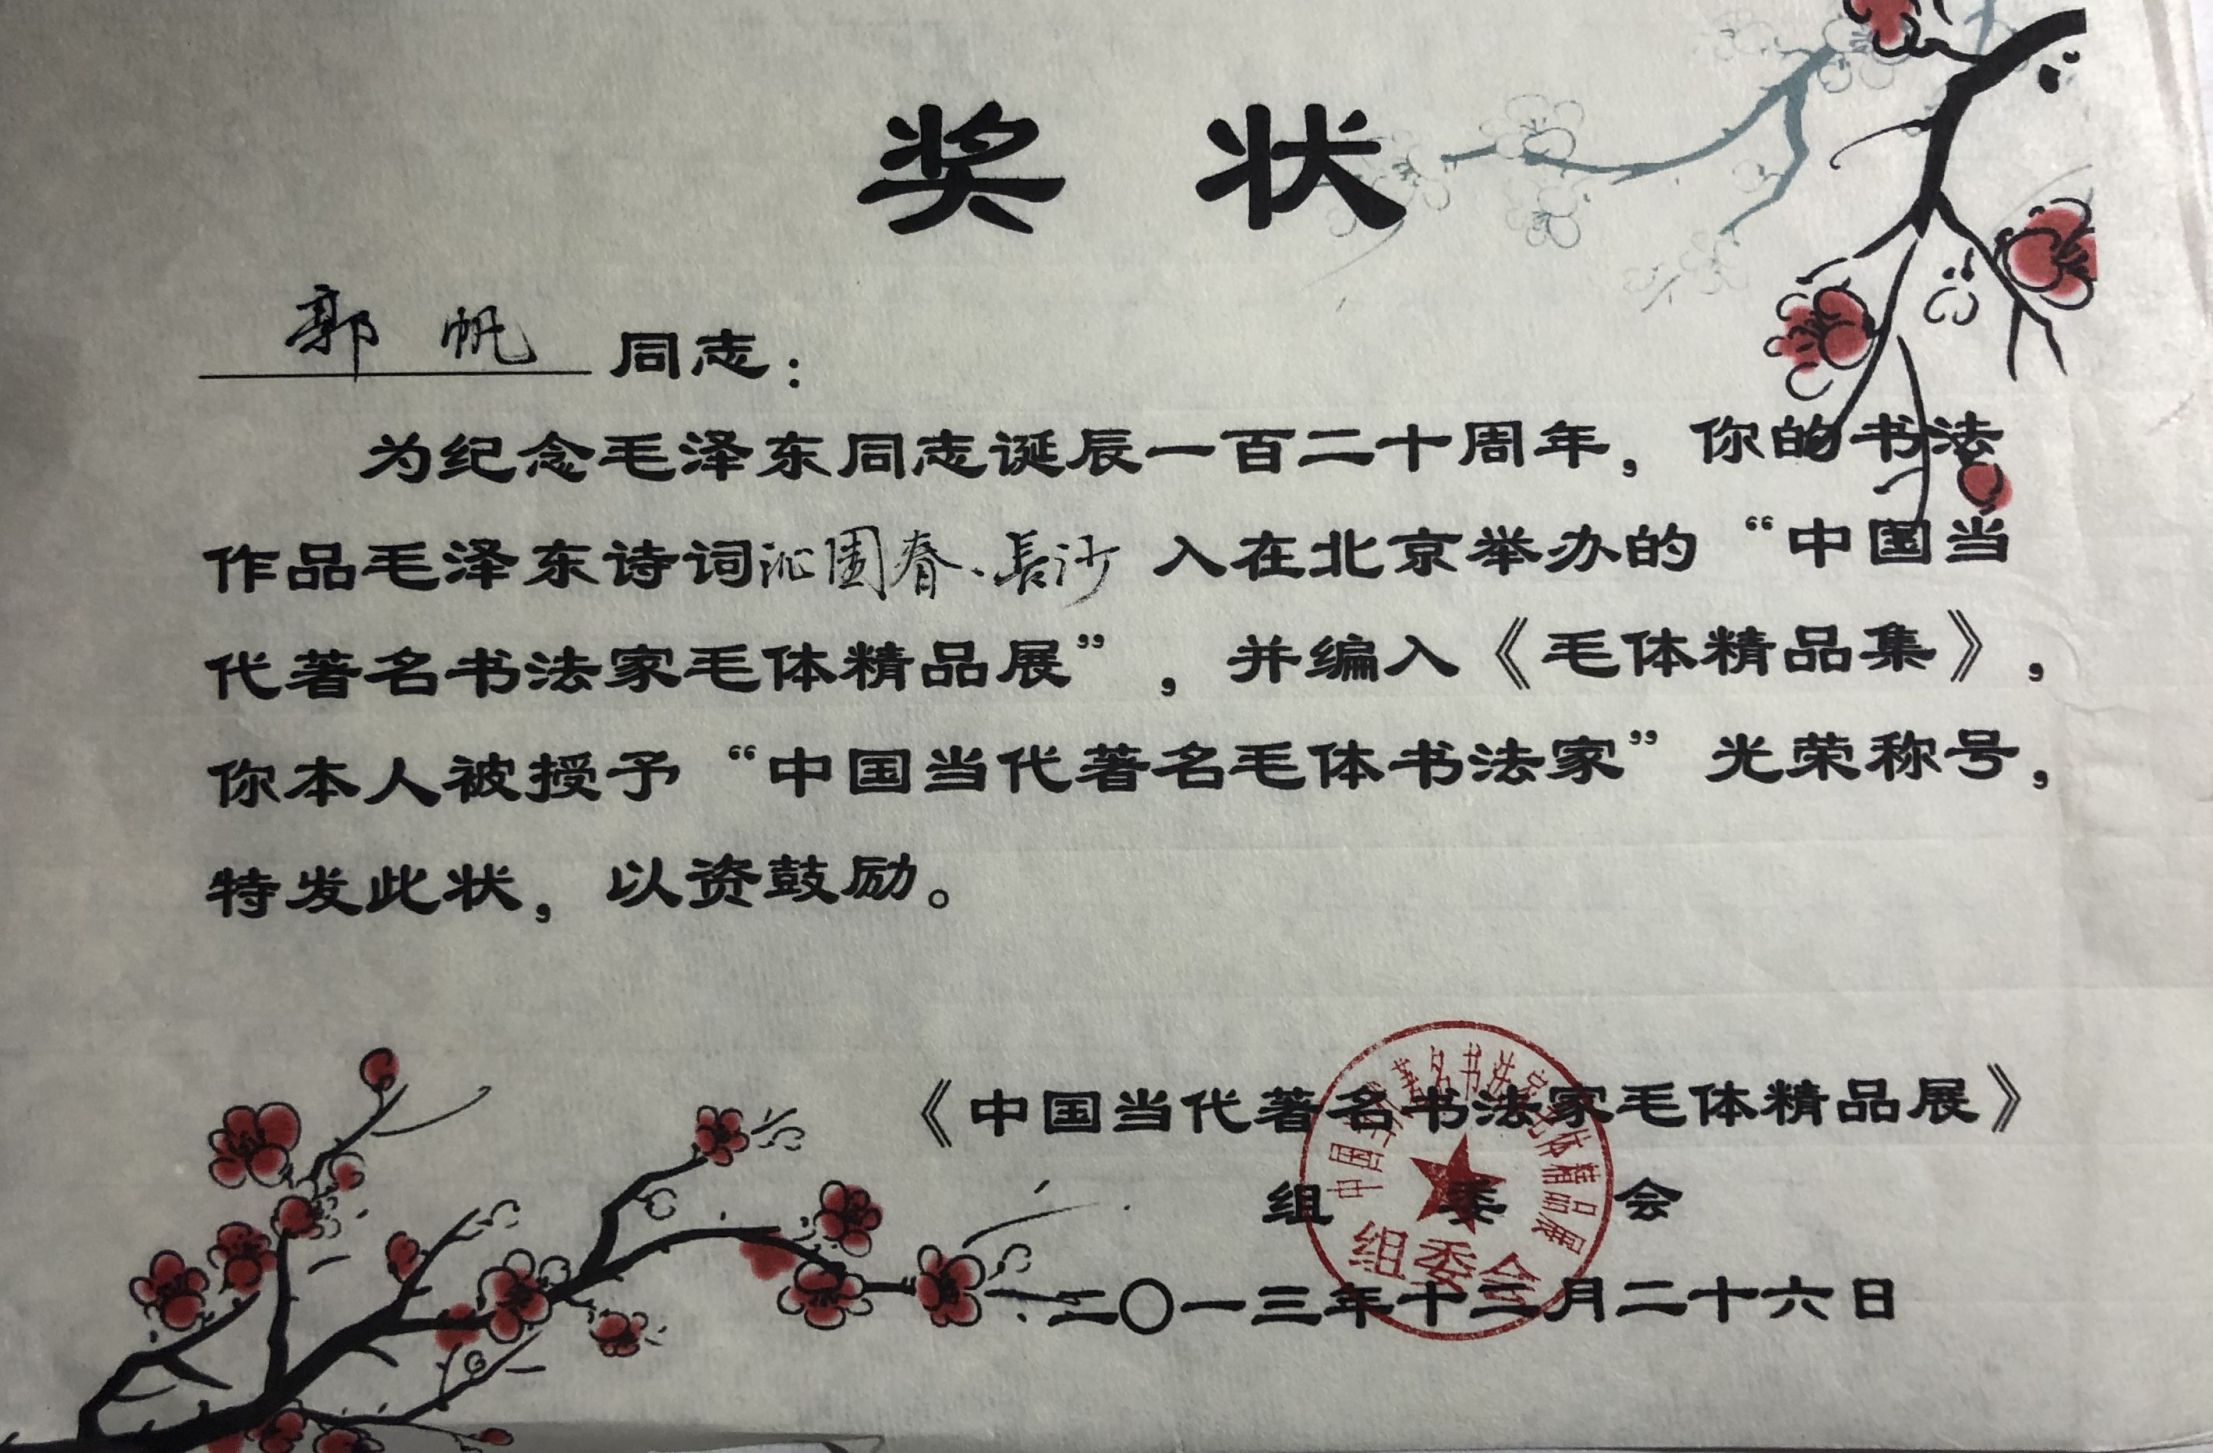 奖状
郭帆同志：
为纪念毛泽东同志诞辰一百二十周年，你的书法
作品毛泽东诗词沁园春·長沙入在北京举办的“中国当
代著名书法家毛体精品展”，并编入《毛体精品集》，
你本人被授予“中国当代著名毛体书法家”光荣称号，
特发此状，以资鼓励。
《中国当代著名书法家毛体精品展》
组委会
二〇一三年十二月二十六日
中国当代著名书法家毛体精品展
组委会